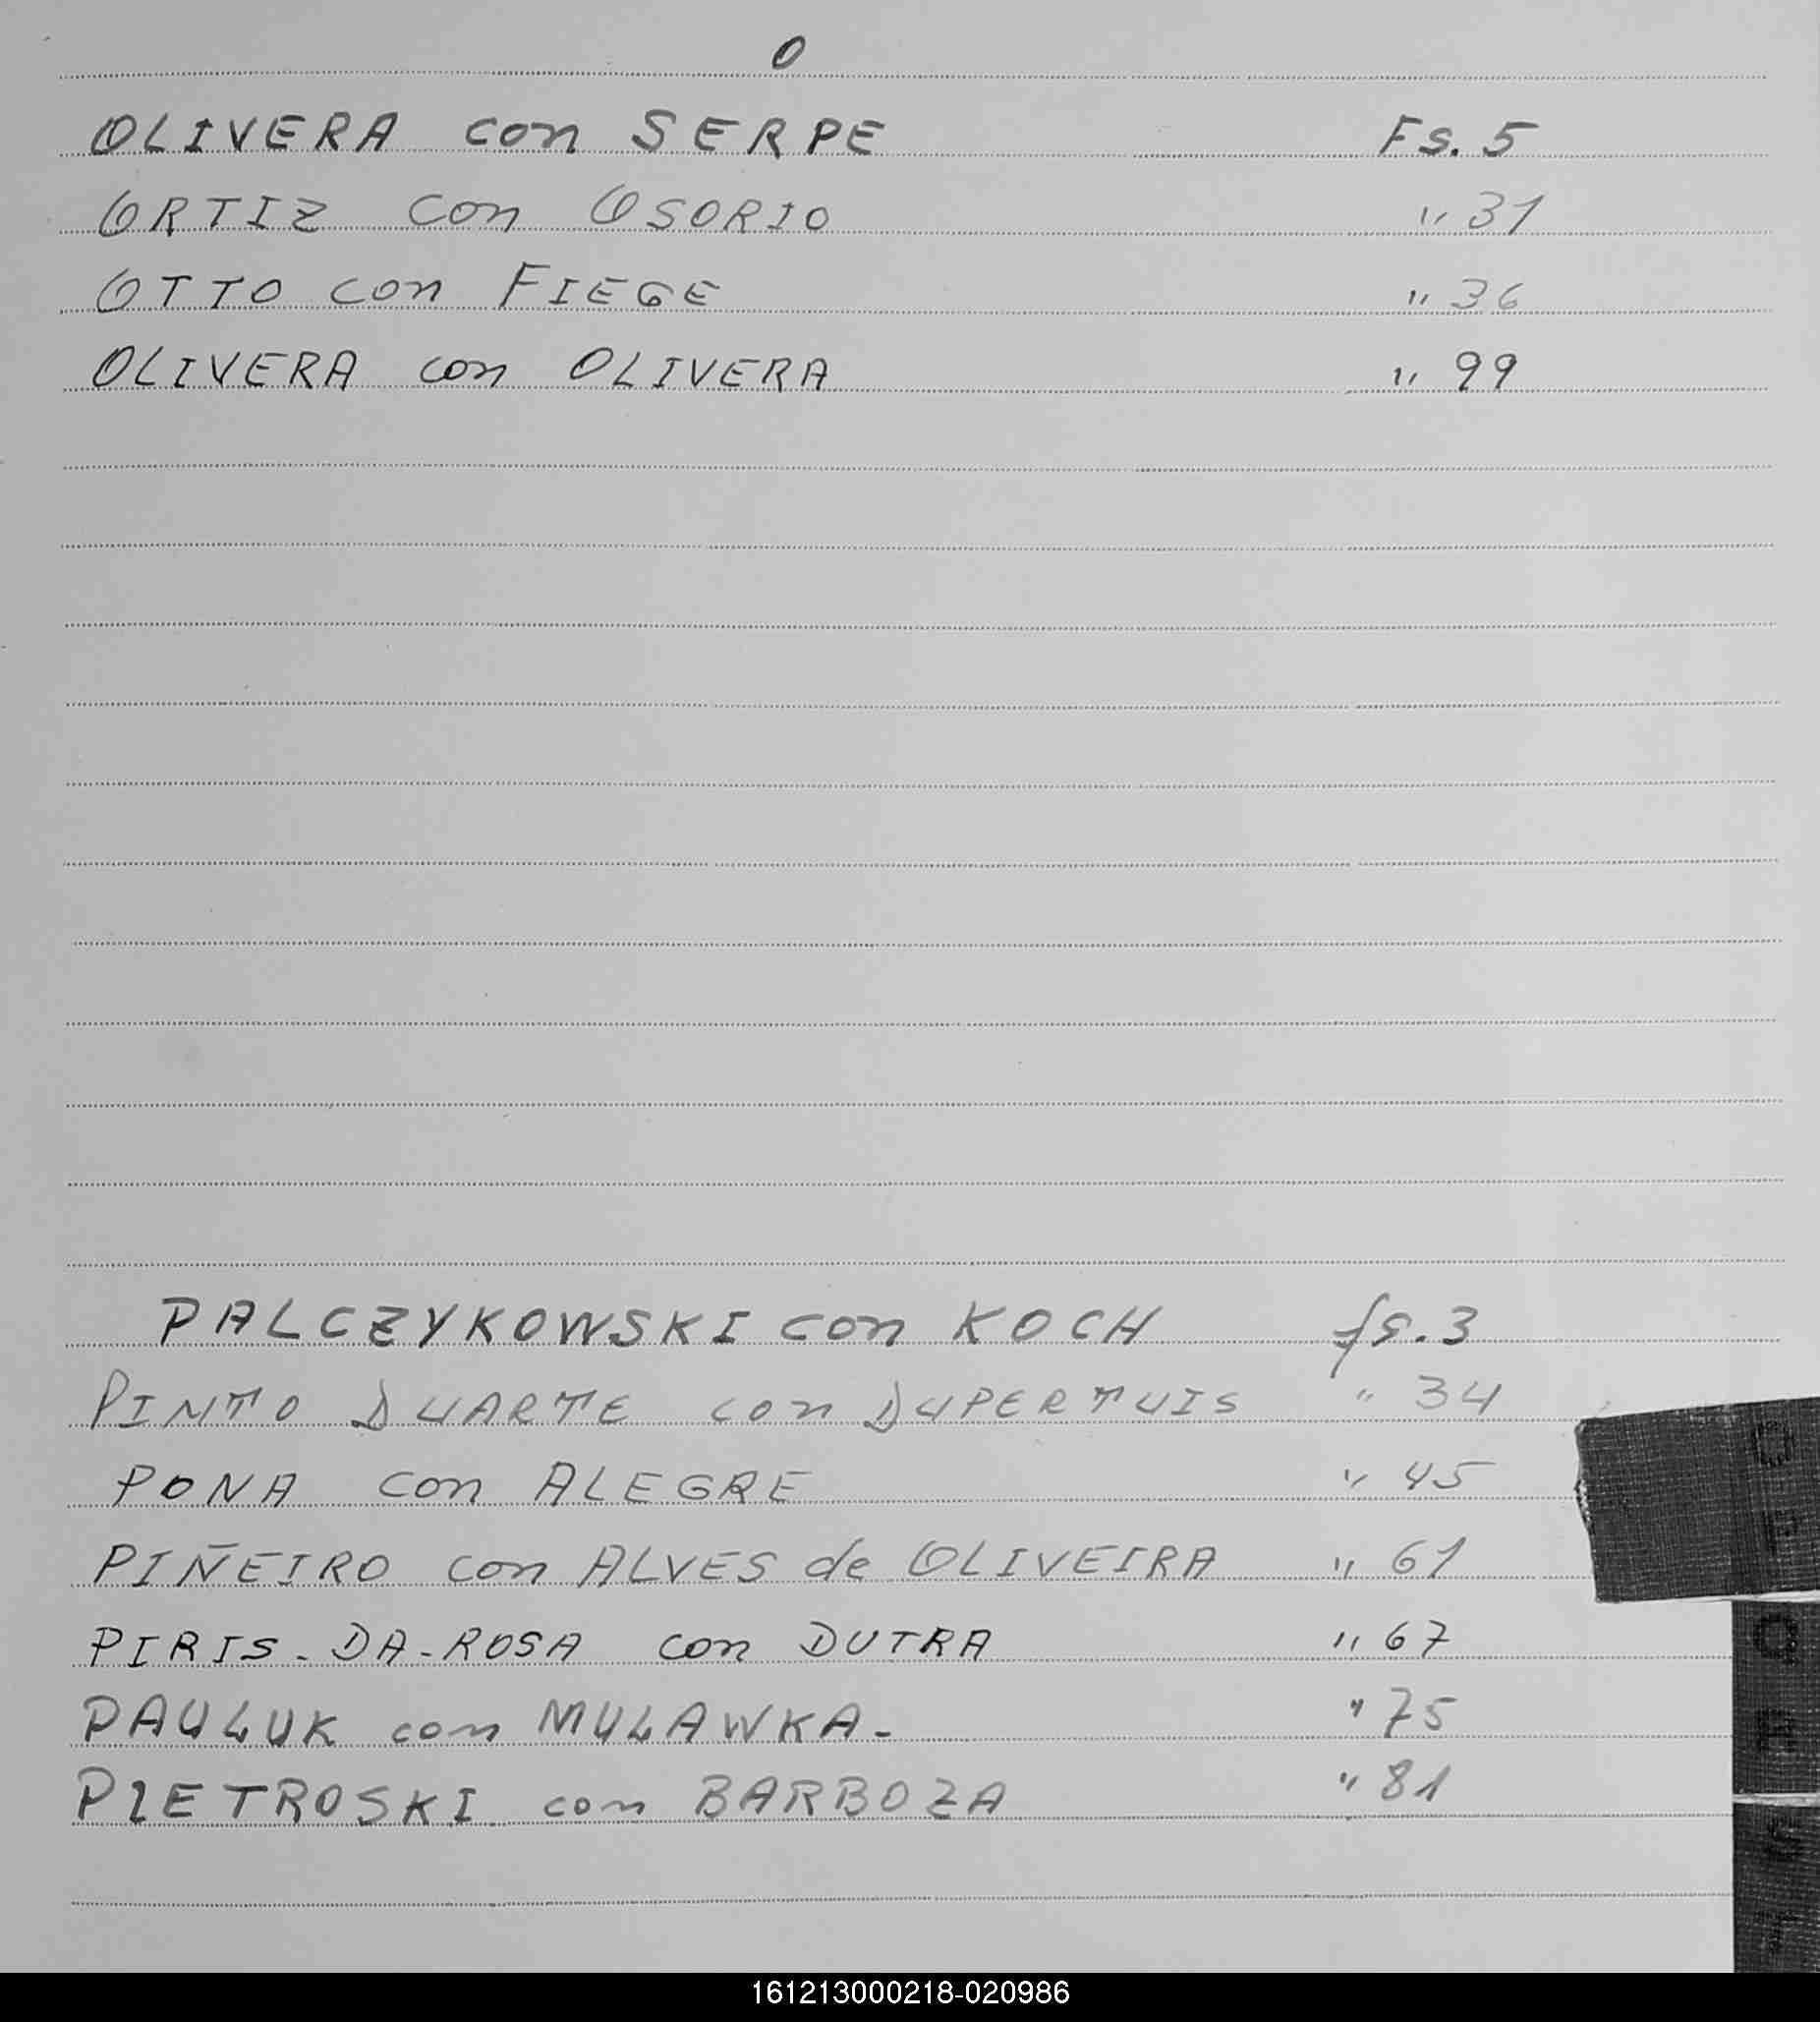 O
OLIVERA con SERPE Fs. 5
ORTIZ con OSORIO " 31
OTTO con FIEGE " 36
OLIVERA con OLIVERA " 99
PALCZYKOWSKI con KOCH fs. 3
PINTO DUARTE con DUPERTUIS " 34
PONA con ALEGRE " 45
PIÑEIRO con ALVES de OLIVEIRA " 61
PIRIS-DA-ROSA con DUTRA " 67
PAULUK con MULAWKA- " 75
PIETROSKI con BARBOZA " 81
161213000218-020986